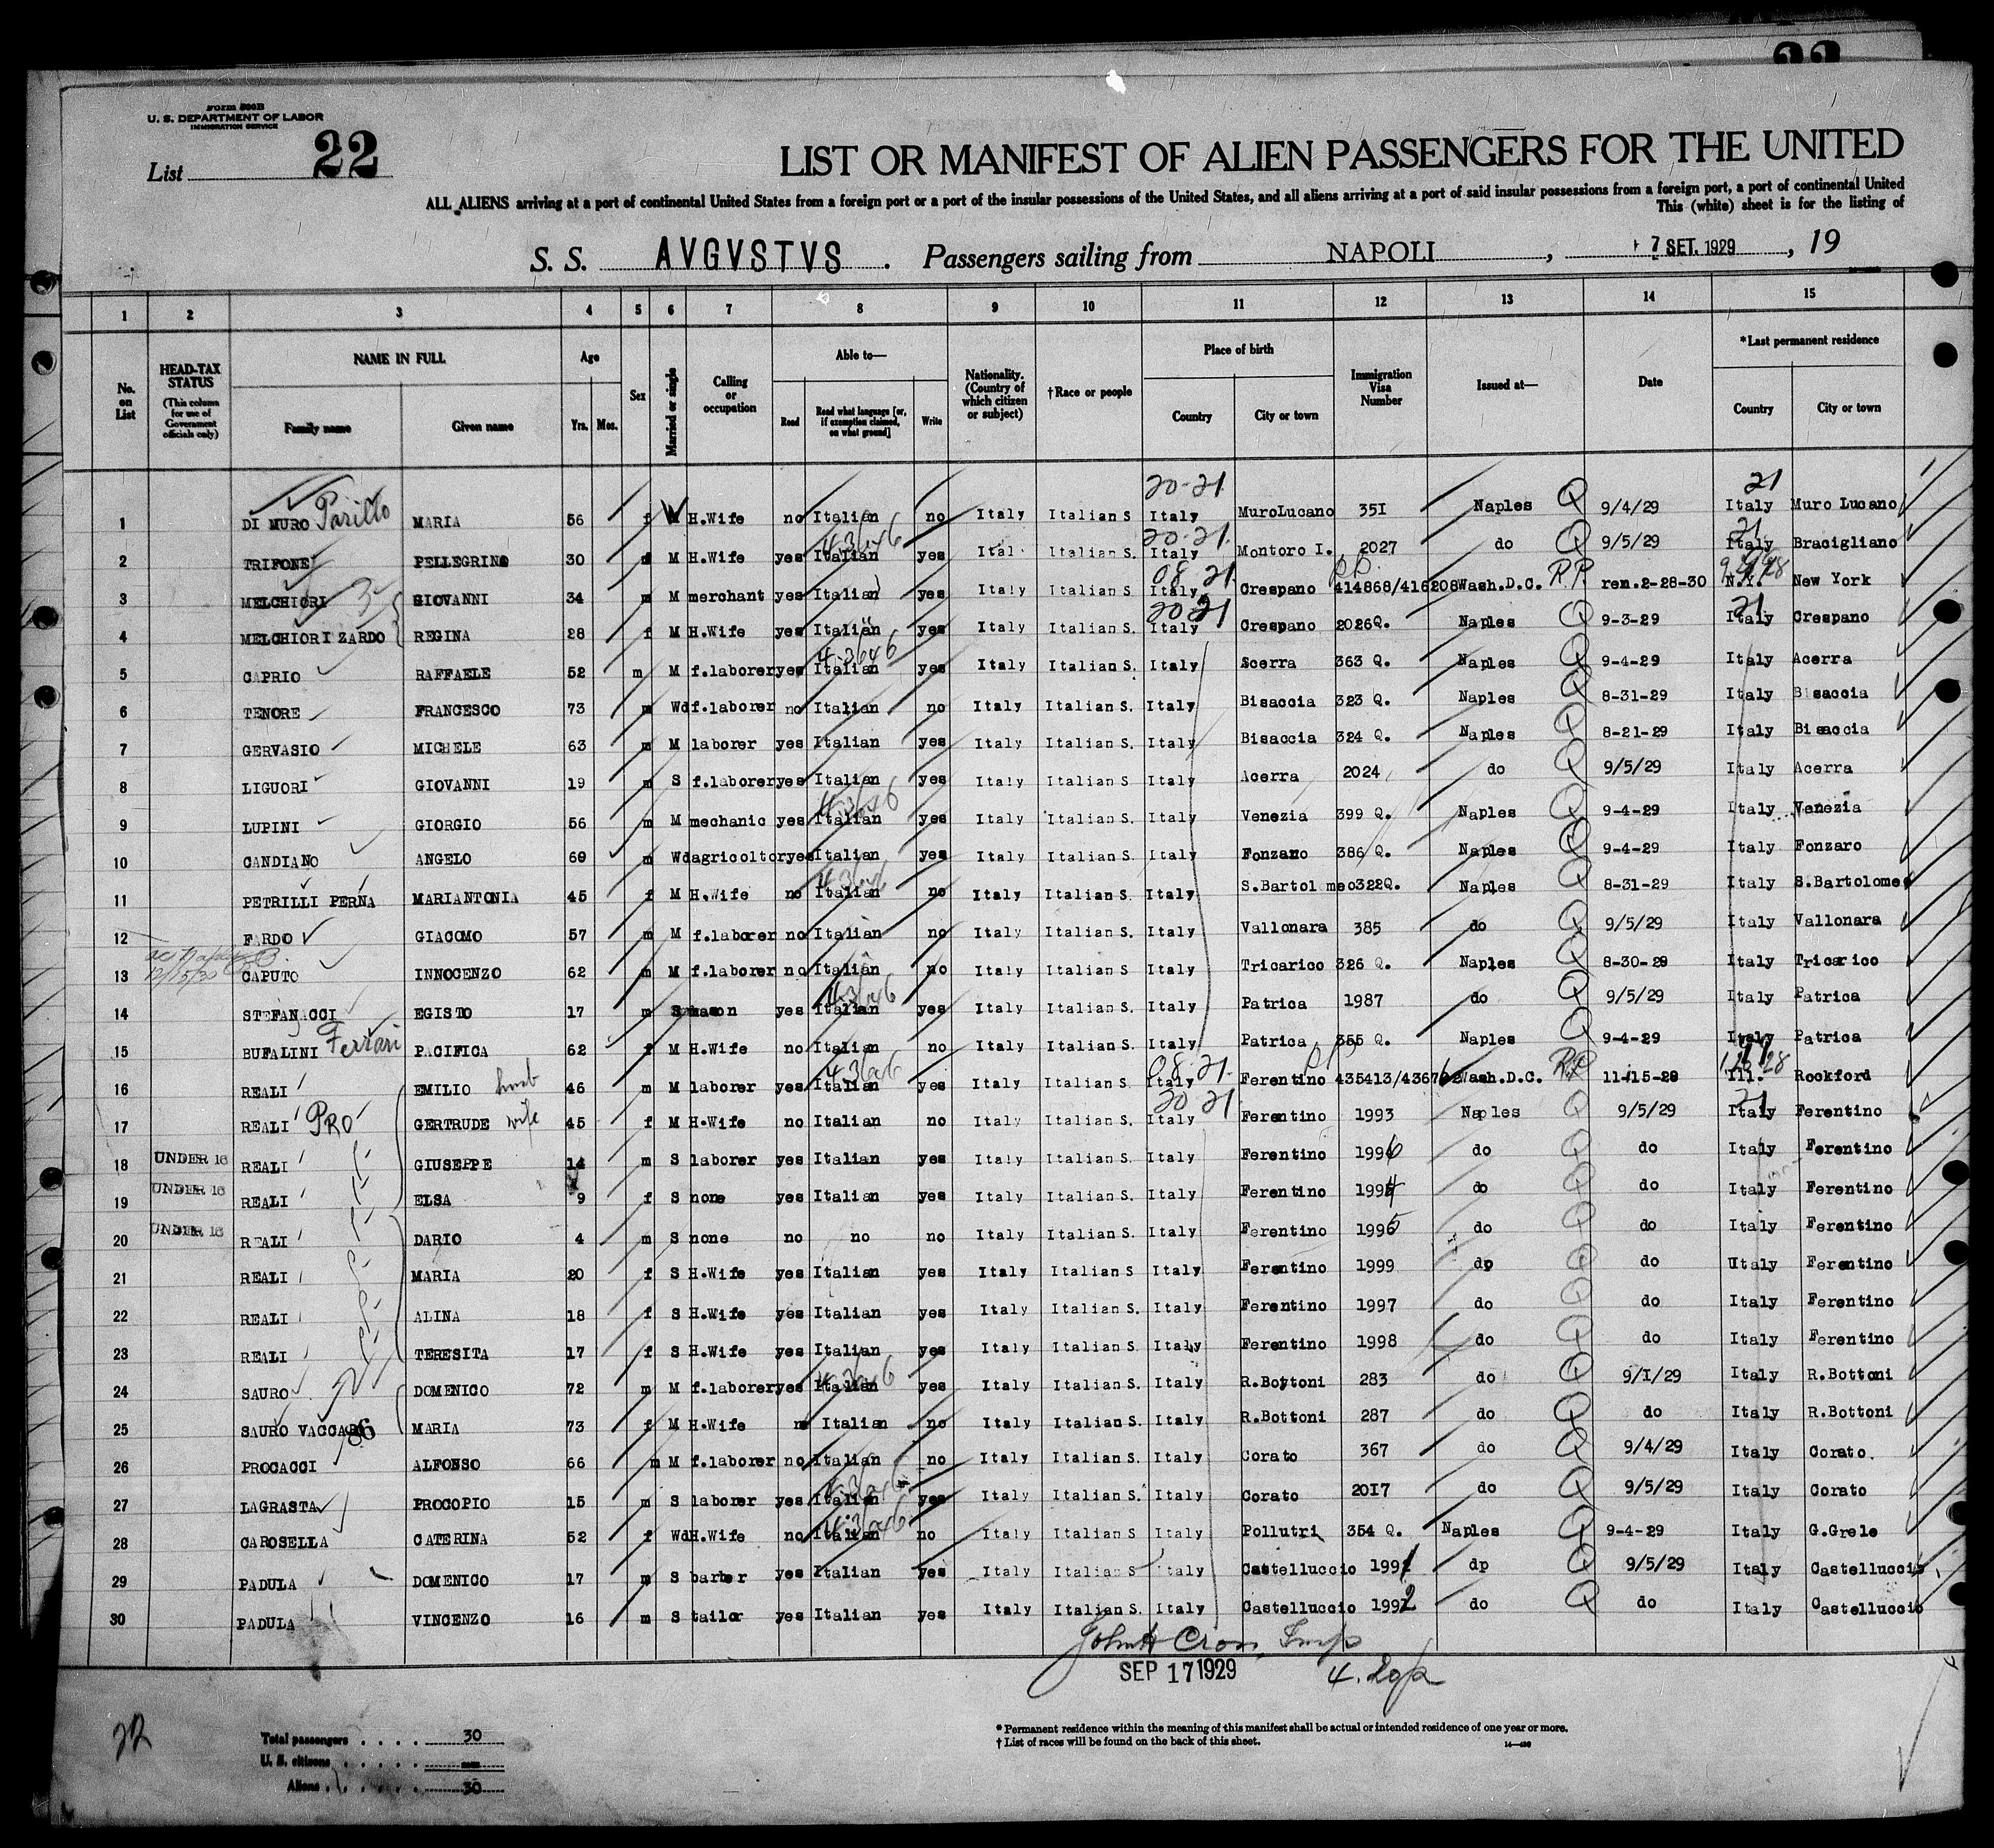 22
Form 500B
U. S. DEPARTMENT OF LABOR
IMMIGRATION SERVICE
List 22
LIST OR MANIFEST OF ALIEN PASSENGERS FOR THE UNITED
ALL ALIENS arriving at a port of continental United States from a foreign port or a port of the insular possessions of the United States, and all aliens arriving at a port of said insular possessions from a foreign port, a port of continental United
This (white) sheet is for the listing of
S. S. AVGVSTVS . Passengers sailing from NAPOLI , 7 SET. 1929 , 19
1 2 3 4 5 6 7 8 9 10 11 12 13 14 15
No. on List HEAD-TAX STATUS (This column for use of Government officials only) NAME IN FULL Family name Given name Age Yrs. Mos. Sex Married or single Calling or occupation Able to— Read Read what language [or, if exemption claimed, on what ground] Write Nationality. (Country of which citizen or subject) †Race or people Place of birth Country City or town Immigration Visa Number Issued at— Date *Last permanent residence Country City or town
20-21 21
1 DI MURO Parillo MARIA 56 f W H.Wife no Italian no Italy Italian S Italy MuroLucano 35I Naples Q 9/4/29 Italy Muro Lucano
43646 20-21 21
2 TRIFONE PELLEGRINO 30 M H.Wife yes Italian yes Ital Italian S. Italy Montoro I. 2027 do Q 9/5/29 Italy Bracigliano
08 21 R.P.
3 MELCHIORI GIOVANNI 34 m M merchant yes Italian yes Italy Italian S. Italy Crespano 414868/416208 Wash.D.C. R.P. ren.2-28-30 N.Y. New York
20 21 21
4 MELCHIORI ZARDO REGINA 28 f M H.Wife yes Italian yes Italy Italian S. Italy Crespano 2026Q. Naples Q 9-3-29 Italy Crespano
43646
5 CAPRIO RAFFAELE 52 m M f.laborer yes Italian yes Italy Italian S. Italy Scerra 363 Q. Naples Q 9-4-29 Italy Acerra
6 TENORE FRANCESCO 73 m Wd f.laborer no Italian no Italy Italian S. Italy Bisaccia 323 Q. Naples Q 8-31-29 Italy Bisaccia
7 GERVASIO MICHELE 63 m M laborer yes Italian yes Italy Italian S. Italy Bisaccia 324 Q. Naples Q 8-21-29 Italy Bisaccia
8 LIGUORI GIOVANNI 19 m S f.laborer yes Italian yes Italy Italian S. Italy Acerra 2024 do Q 9/5/29 Italy Acerra
43646
9 LUPINI GIORGIO 56 m M mechanic yes Italian yes Italy Italian S. Italy Venezia 399 Q. Naples Q 9-4-29 Italy Venezia
10 CANDIANO ANGELO 60 m Wd agricoltor yes Italian yes Italy Italian S Italy Fonzaro 386 Q. Naples Q 9-4-29 Italy Fonzaro
43646
11 PETRILLI PERNA MARIANTONIA 45 f M H.Wife no Italian no Italy Italian S. Italy S.Bartol meo 322Q. Naples Q 8-31-29 Italy S.Bartolomeo
12 FARDO GIACOMO 57 m M f.laborer no Italian no Italy Italian S. Italy Vallonara 385 do Q 9/5/29 Italy Vallonara
12/15/30
13 CAPUTO INNOCENZO 62 m M f.laborer no Italian no Italy Italian S. Italy Tricarico 326 Q. Naples Q 8-30-29 Italy Tricarico
43646
14 STEFANACCI EGISTO 17 m S mason yes Italian yes Italy Italian S. Italy Patrica 1987 do Q 9/5/29 Italy Patrica
15 BUFALINI Ferrari PACIFICA 62 f M H.Wife no Italian no Italy Italian S. Italy Patrica 355 Q. Naples Q 9-4-29 Italy Patrica
43646 08-21 R.P.
16 REALI EMILIO husb 46 m M laborer yes Italian yes Italy Italian S. Italy Ferentino 435413/4367 Wash.D.C. R.P. 11-15-28 Ill. Rockford
20 21 21
17 REALI PRO GERTRUDE wife 45 f M H.Wife no Italian no Italy Italian S. Italy Ferentino 1993 Naples Q 9/5/29 Italy Ferentino
18 UNDER 16 REALI GIUSEPPE 14 m S laborer yes Italian yes Italy Italian S. Italy Ferentino 1996 do Q do Italy Ferentino
19 UNDER 16 REALI ELSA 9 f S none yes Italian yes Italy Italian S. Italy Ferentino 1994 do Q do Italy Ferentino
20 UNDER 16 REALI DARIO 4 m S none no no no Italy Italian S. Italy Ferentino 1995 do Q do Italy Ferentino
21 REALI MARIA 20 f S H.Wife yes Italian yes Italy Italian S Italy Ferentino 1999 dp Q do Utaly Ferentino
22 REALI ALINA 18 f S H.Wife yes Italian yes Italy Italian S. Italy Ferentino 1997 do Q do Italy Ferentino
23 REALI TERESITA 17 f S H.Wife yes Italian yes Italy Italian S. Italy Ferentino 1998 do Q do Italy Ferentino
43646
24 SAURO DOMENICO 72 m M f.laborer yes Italian yes Italy Italian S. Italy R.Bottoni 283 do Q 9/1/29 Italy R.Bottoni
25 SAURO VACCARO MARIA 73 f M H.Wife Italian no Italy Italian S. Italy R.Bottoni 287 do Q do Italy R.Bottoni
86
26 PROCACCI ALFONSO 66 m M f.laborer no Italian no Italy Italian S. Italy Corato 367 do Q 9/4/29 Italy Corato.
43646
27 LAGRASTA PROCOPIO 15 m S laborer yes Italian yes Italy Italian S. Italy Corato 20I7 do Q 9/5/29 Italy Corato
43646
28 CAROSELLA CATERINA 52 f Wd H.Wife no Italian no Italy Italian S Italy Pollutri 354 Q. Naples Q 9-4-29 Italy G.Grele
29 PADULA DOMENICO 17 m S barber yes Italian yes Italy Italian S Italy Castelluccio 1991 dp Q 9/5/29 Italy Castelluccio
30 PADULA VINCENZO 16 m S tailor yes Italian yes Italy Italian S. Italy Castelluccio 1992 do Q do Italy Castelluccio
John H Cross Insp
SEP 17 1929
22
Total passengers . . . . 30
U. S. citizens . . . . . —
Aliens . . . . . . 30
* Permanent residence within the meaning of this manifest shall be actual or intended residence of one year or more.
† List of races will be found on the back of this sheet.